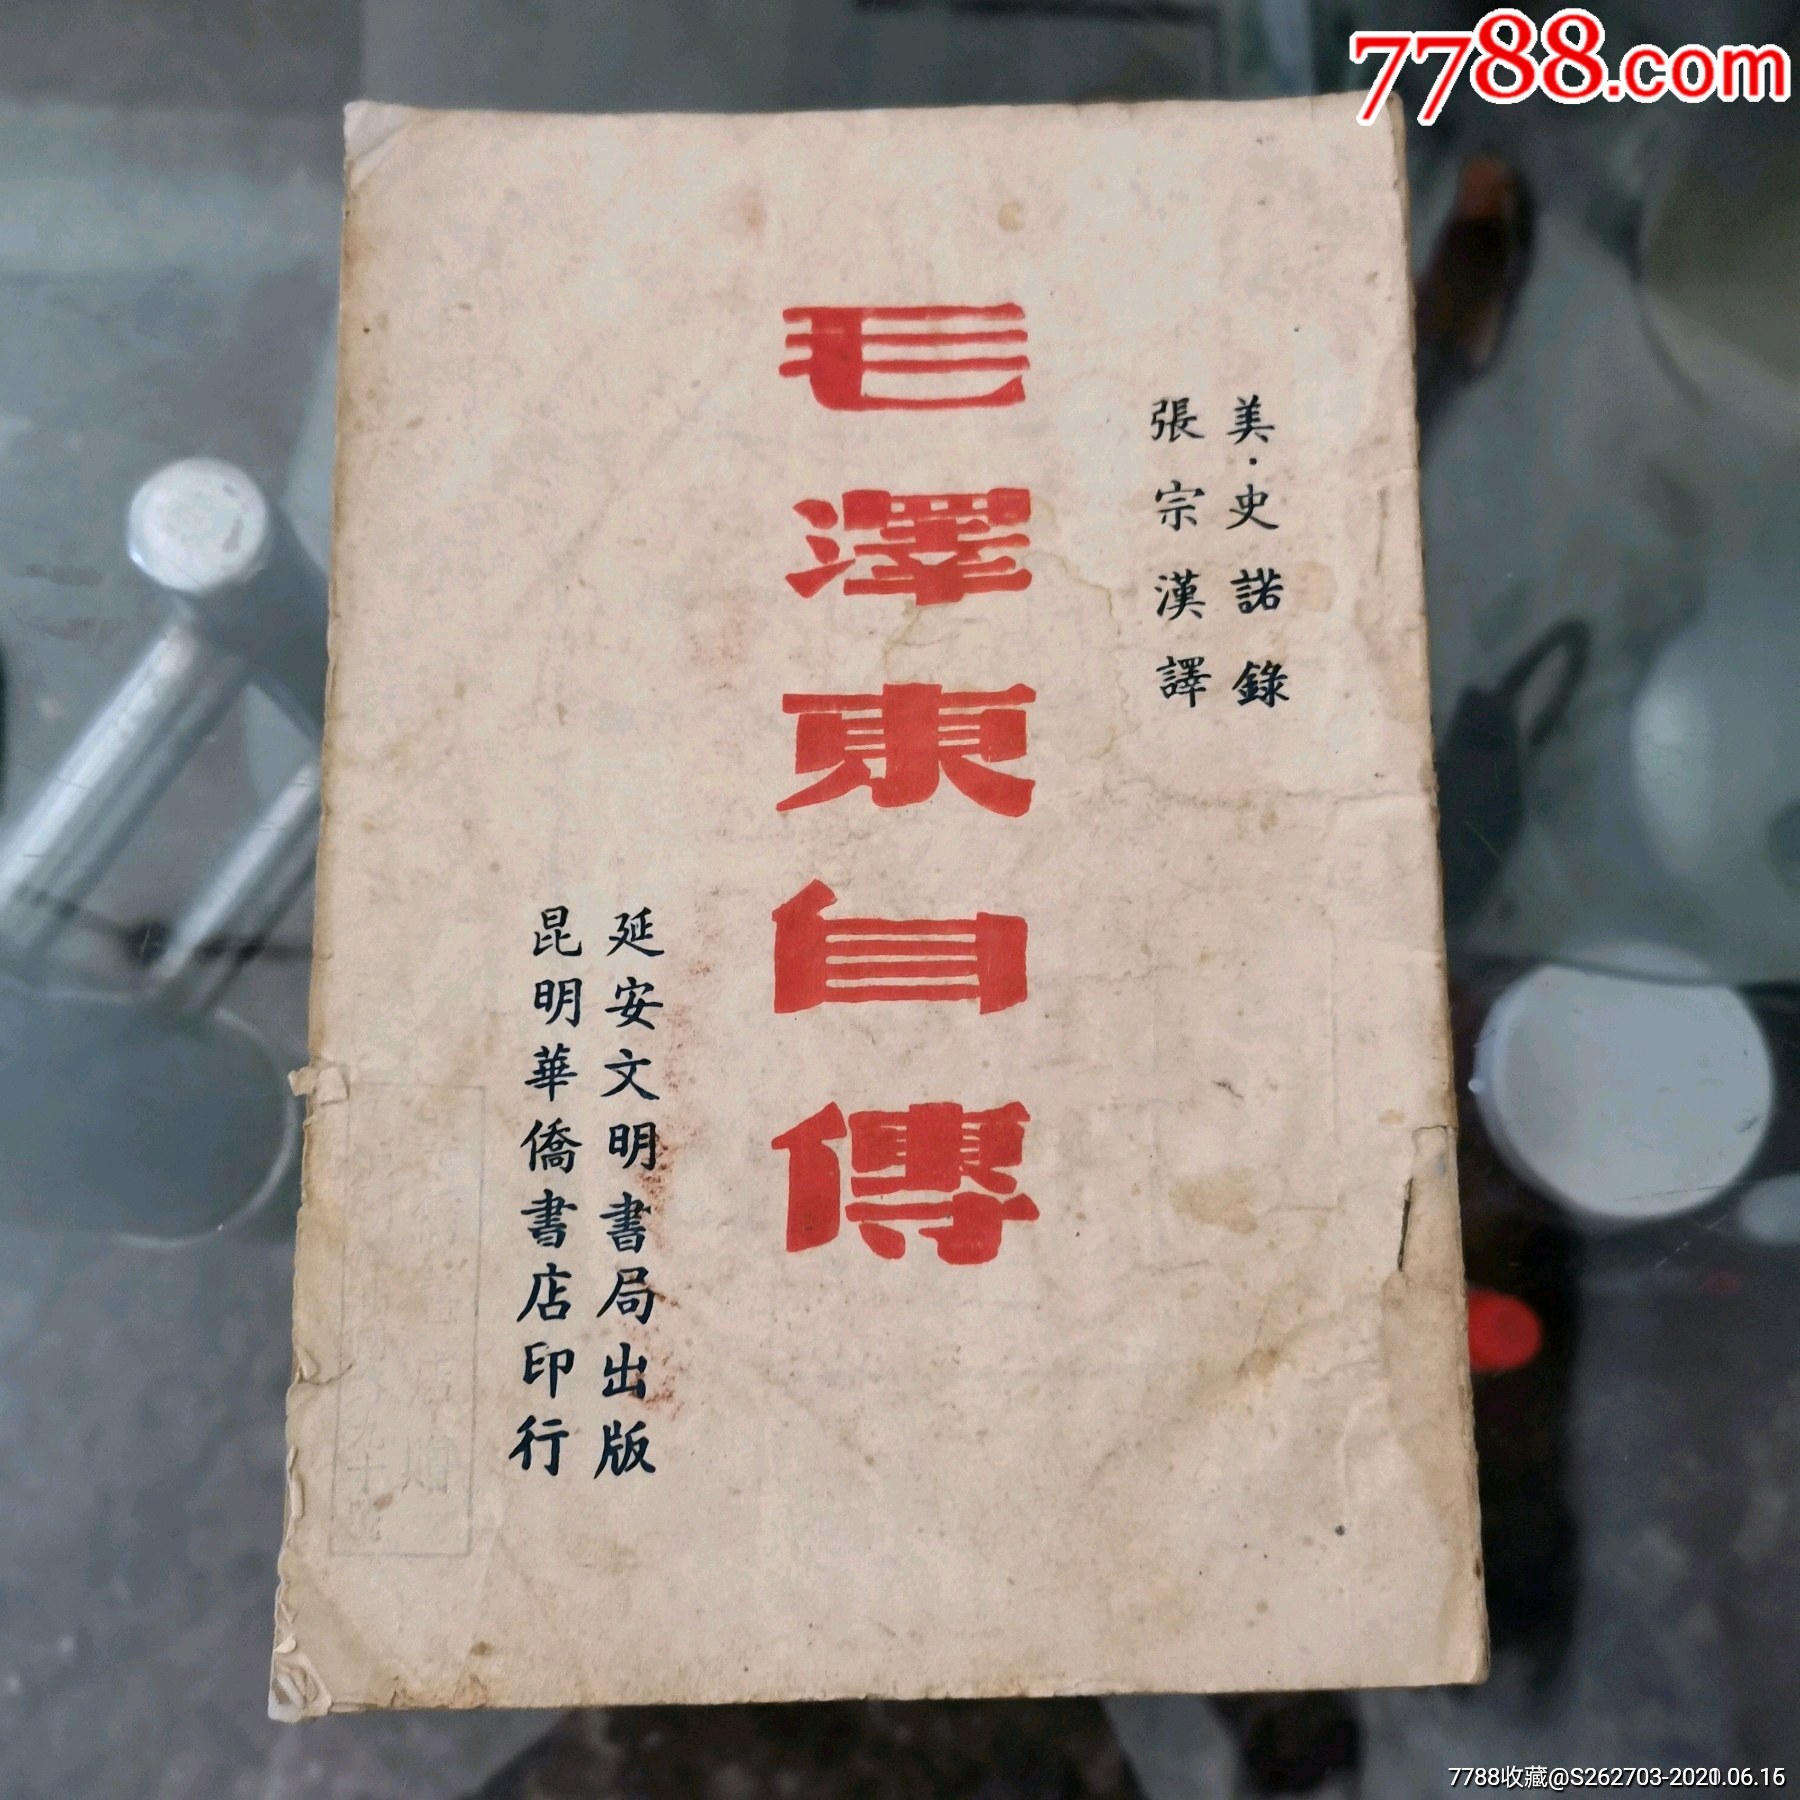 7788.com
美·史諾錄
張宗漢譯
毛澤東自傳
延安文明書局出版
昆明華僑書店印行
7788收藏@S262703-2020.06.16